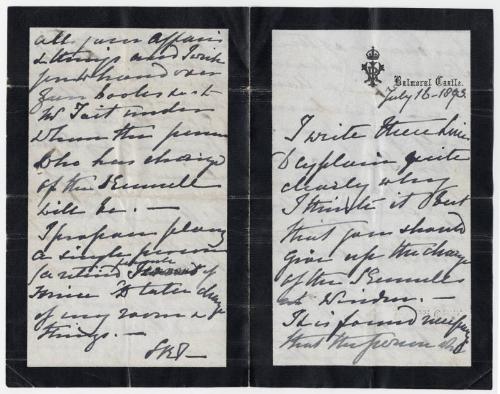 Balmoral Castle.
July 16 - 1893.
I write these lines
to explain quite
clearly why
I think it best
that you should
give up the charge
of the Kennels
at Windsor. —
It is found necessary
that the person who
all your affairs
& things and I wish
you to hand over
your books to
Mr Tait under
whom the person
who has charge
of the Kennels
will be. —
I propose placing
a single person
(a retired of
mine to take charge
of my room &
things. —